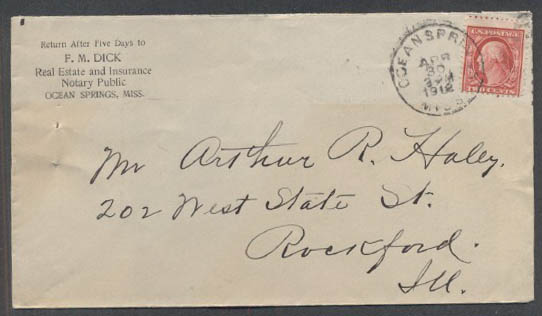 Return After Five Days to
F. M. DICK
Real Estate and Insurance
Notary Public
OCEAN SPRINGS, MISS.
OCEAN SPRI
APR
30
1912
MISS.
U.S. POSTAGE
Mr Arthur R. Haley.
202 West State St.
Rockford.
Ill.